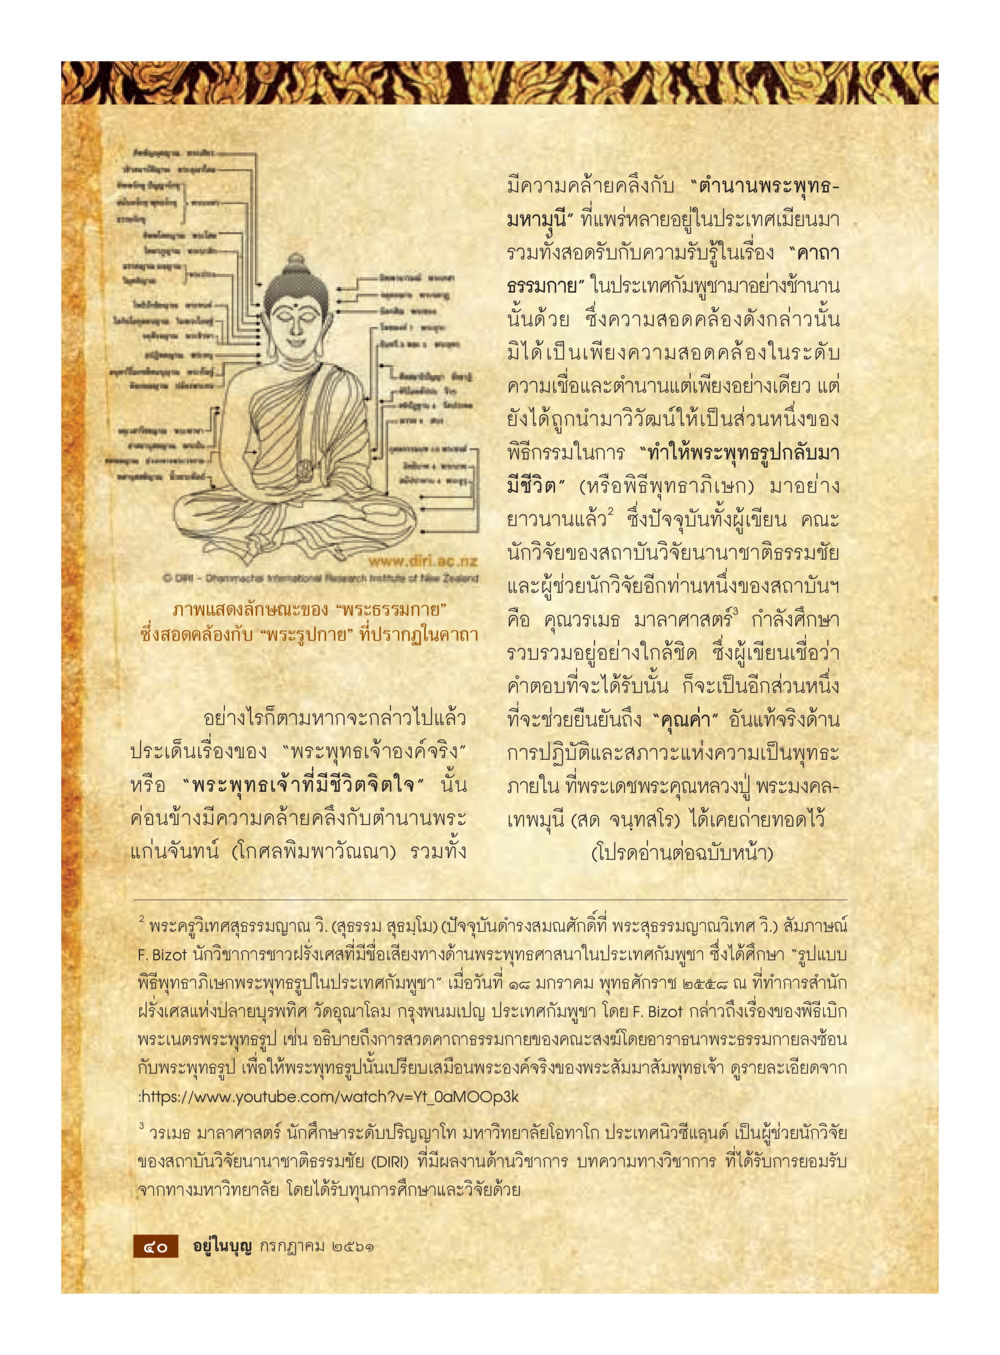 www.diri.ac.nz
© DIRI - Dhammachai International Research Institute of New Zealand
ภาพแสดงลักษณะของ “พระธรรมกาย”
ซึ่งสอดคล้องกับ “พระรูปกาย” ที่ปรากฏในคาถา
อย่างไรก็ตามหากจะกล่าวไปแล้ว
ประเด็นเรื่องของ “พระพุทธเจ้าองค์จริง”
หรือ “พระพุทธเจ้าที่มีชีวิตจิตใจ” นั้น
ค่อนข้างมีความคล้ายคลึงกับตำนานพระ
แก่นจันทน์ (โกศลพิมพาวัณณา) รวมทั้ง
มีความคล้ายคลึงกับ “ตำนานพระพุทธ-
มหามุนี” ที่แพร่หลายอยู่ในประเทศเมียนมา
รวมทั้งสอดรับกับความรับรู้ในเรื่อง “คาถา
ธรรมกาย” ในประเทศกัมพูชามาอย่างช้านาน
นั้นด้วย ซึ่งความสอดคล้องดังกล่าวนั้น
มิได้เป็นเพียงความสอดคล้องในระดับ
ความเชื่อและตำนานแต่เพียงอย่างเดียว แต่
ยังได้ถูกนำมาวิวัฒน์ให้เป็นส่วนหนึ่งของ
พิธีกรรมในการ “ทำให้พระพุทธรูปกลับมา
มีชีวิต” (หรือพิธีพุทธาภิเษก) มาอย่าง
ยาวนานแล้ว² ซึ่งปัจจุบันทั้งผู้เขียน คณะ
นักวิจัยของสถาบันวิจัยนานาชาติธรรมชัย
และผู้ช่วยนักวิจัยอีกท่านหนึ่งของสถาบันฯ
คือ คุณวรเมธ มาลาศาสตร์³ กำลังศึกษา
รวบรวมอยู่อย่างใกล้ชิด ซึ่งผู้เขียนเชื่อว่า
คำตอบที่จะได้รับนั้น ก็จะเป็นอีกส่วนหนึ่ง
ที่จะช่วยยืนยันถึง “คุณค่า” อันแท้จริงด้าน
การปฏิบัติและสภาวะแห่งความเป็นพุทธะ
ภายใน ที่พระเดชพระคุณหลวงปู่ พระมงคล-
เทพมุนี (สด จนฺทสโร) ได้เคยถ่ายทอดไว้
(โปรดอ่านต่อฉบับหน้า)
² พระครูวิเทศสุธรรมญาณ วิ. (สุธรรม สุธมฺโม) (ปัจจุบันดำรงสมณศักดิ์ที่ พระสุธรรมญาณวิเทศ วิ.) สัมภาษณ์
F. Bizot นักวิชาการชาวฝรั่งเศสที่มีชื่อเสียงทางด้านพระพุทธศาสนาในประเทศกัมพูชา ซึ่งได้ศึกษา “รูปแบบ
พิธีพุทธาภิเษกพระพุทธรูปในประเทศกัมพูชา” เมื่อวันที่ ๑๘ มกราคม พุทธศักราช ๒๕๕๘ ณ ที่ทำการสำนัก
ฝรั่งเศสแห่งปลายบุรพทิศ วัดอุณาโลม กรุงพนมเปญ ประเทศกัมพูชา โดย F. Bizot กล่าวถึงเรื่องของพิธีเบิก
พระเนตรพระพุทธรูป เช่น อธิบายถึงการสวดคาถาธรรมกายของคณะสงฆ์โดยอาราธนาพระธรรมกายลงซ้อน
กับพระพุทธรูป เพื่อให้พระพุทธรูปนั้นเปรียบเสมือนพระองค์จริงของพระสัมมาสัมพุทธเจ้า ดูรายละเอียดจาก
:https://www.youtube.com/watch?v=Yt_0aMOOp3k
³ วรเมธ มาลาศาสตร์ นักศึกษาระดับปริญญาโท มหาวิทยาลัยโอทาโก ประเทศนิวซีแลนด์ เป็นผู้ช่วยนักวิจัย
ของสถาบันวิจัยนานาชาติธรรมชัย (DIRI) ที่มีผลงานด้านวิชาการ บทความทางวิชาการ ที่ได้รับการยอมรับ
จากทางมหาวิทยาลัย โดยได้รับทุนการศึกษาและวิจัยด้วย
๔๐ อยู่ในบุญ กรกฎาคม ๒๕๖๑